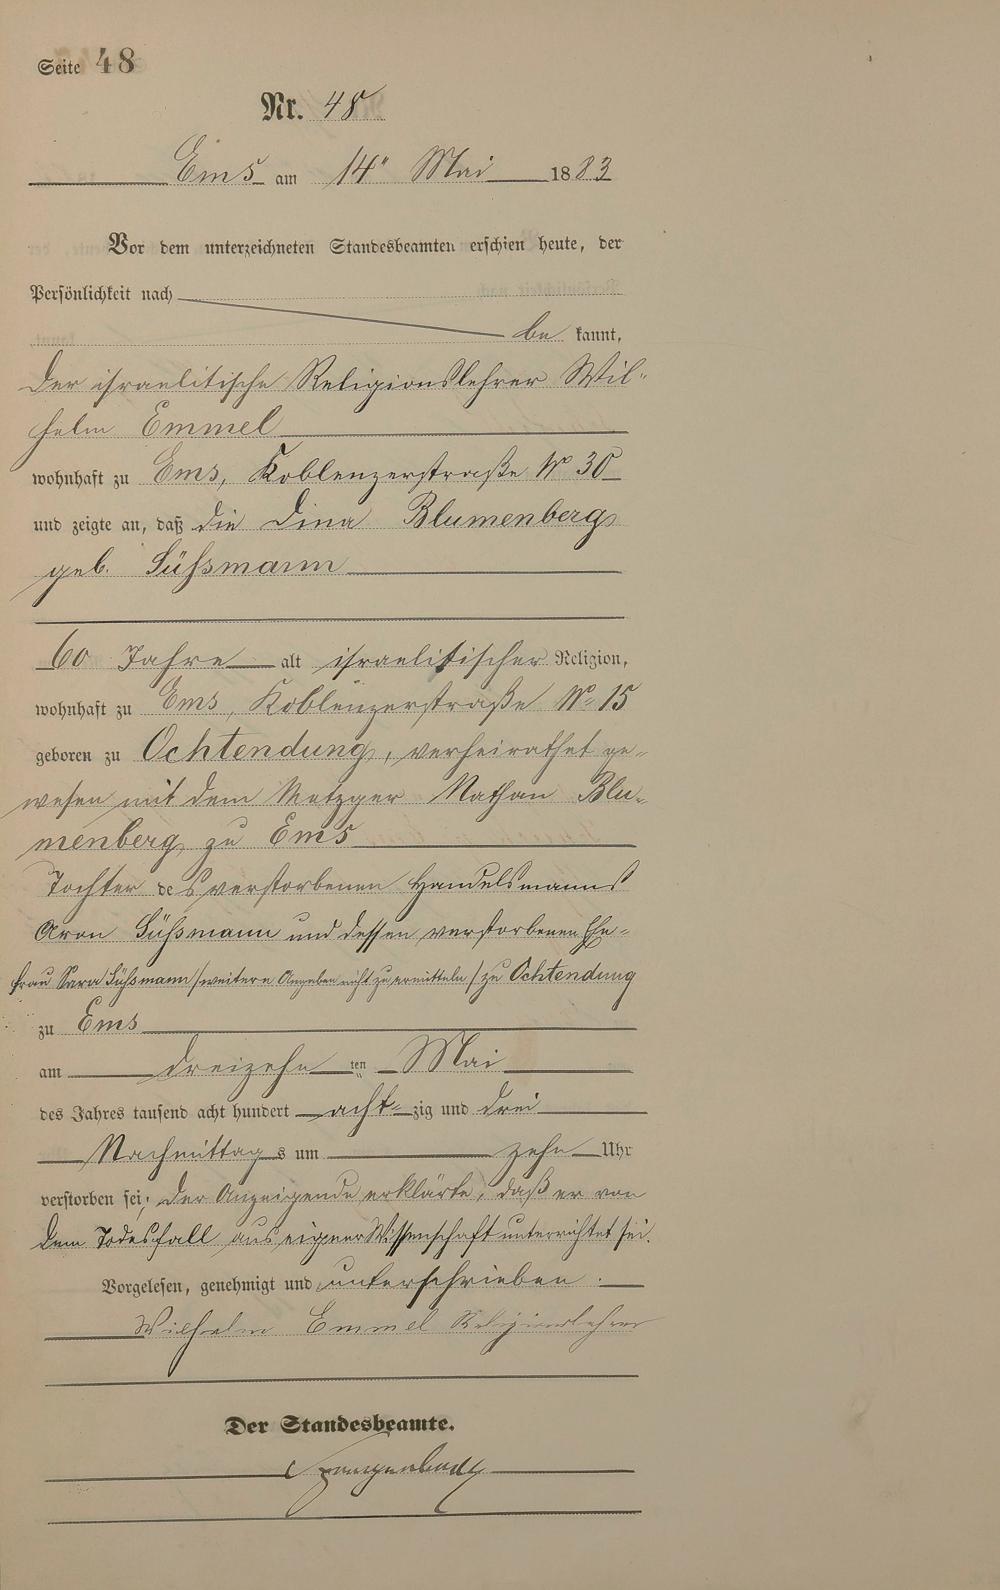 Seite 48
Nr. 48
Ems am 14" Mai 1883
Vor dem unterzeichneten Standesbeamten erschien heute, der
Persönlichkeit nach
be kannt,
der israelitische Religionslehrer Wil-
helm Emmel
wohnhaft zu Ems, Koblenzerstraße No 30
und zeigte an, daß die Dina Blumenberg
geb. Süßsmann
60 Jahre alt israelitischer Religion,
wohnhaft zu Ems, Koblenzerstraße No 15
geboren zu Ochtendung, verheirathet ge-
wesen mit dem Metzger Nathan Blu-
menberg zu Ems
Tochter des verstorbenen Handelsmanns
Aron Süßsmann und dessen verstorbenen Ehe-
frau Sara Süßsmann /weitere Angaben nicht zu ermitteln/ zu Ochtendung
zu Ems
am dreizehn ten Mai
des Jahres tausend acht hundert acht- zig und drei
Nachmittags um zehn Uhr
verstorben sei; der Anzeigende erklärte, daß er von
dem Todesfall aus eigener Wissenschaft unterrichtet sei.
Vorgelesen, genehmigt und unterschrieben.
Wilhelm Emmel Religionslehrer
Der Standesbeamte.